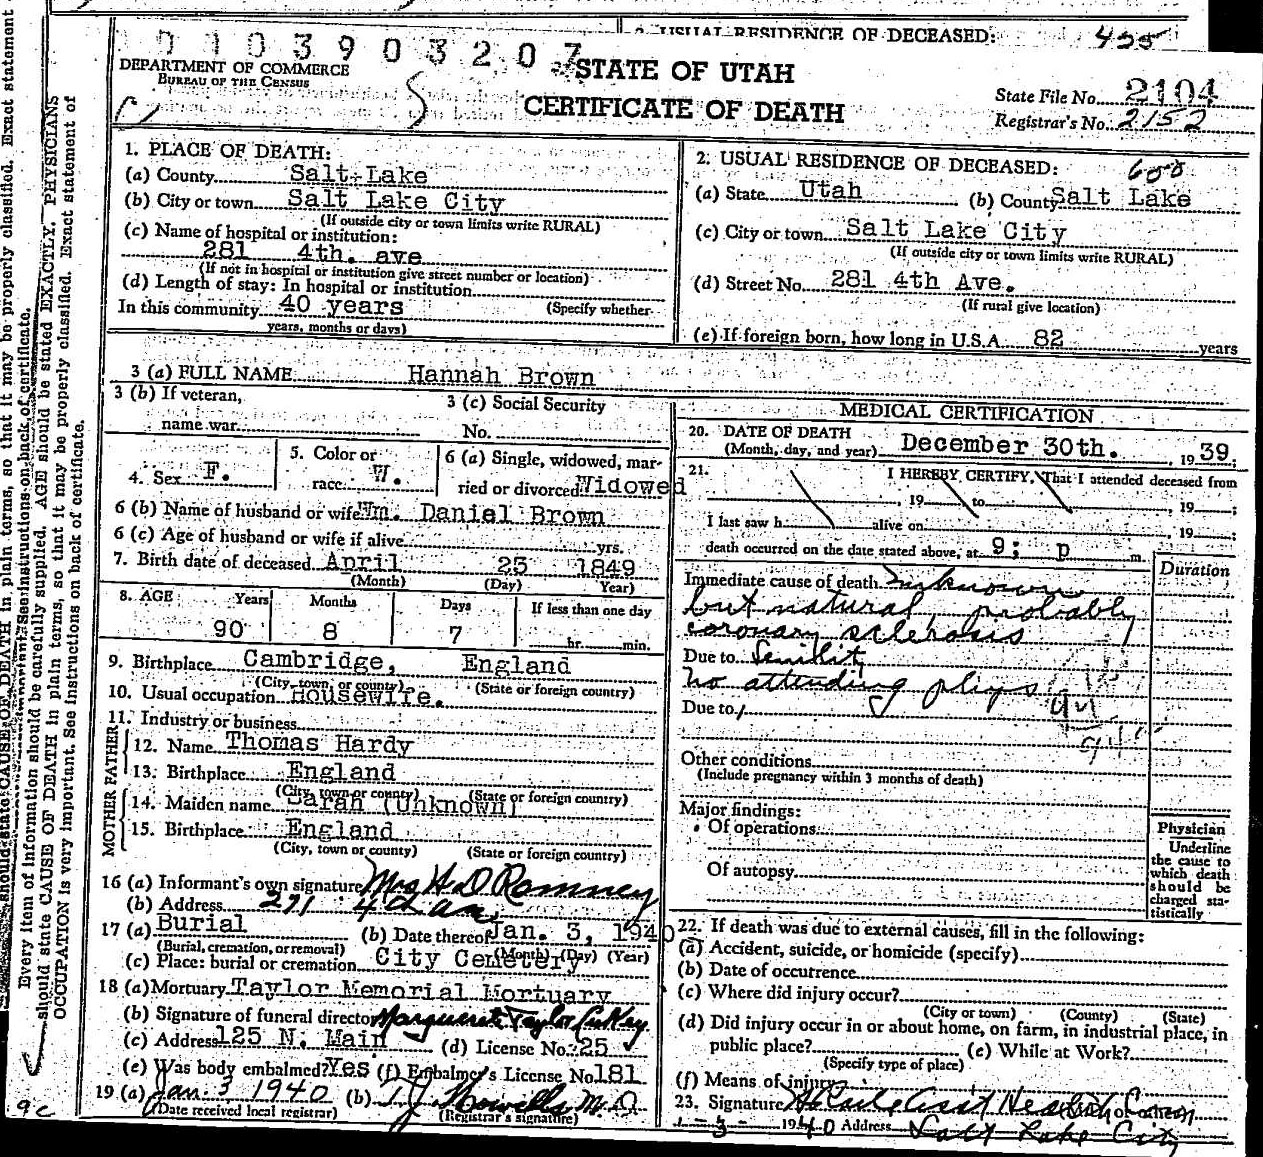 2. USUAL RESIDENCE OF DECEASED: 455
0103903207
DEPARTMENT OF COMMERCE
BUREAU OF THE CENSUS
STATE OF UTAH
CERTIFICATE OF DEATH
State File No. 2104
Registrar's No. 2152
1. PLACE OF DEATH:
(a) County Salt Lake
(b) City or town Salt Lake City
(If outside city or town limits write RURAL)
(c) Name of hospital or institution:
281 4th. ave
(If not in hospital or institution give street number or location)
(d) Length of stay: In hospital or institution
In this community 40 years (Specify whether
years, months or days)
2. USUAL RESIDENCE OF DECEASED:
(a) State Utah (b) County Salt Lake
(c) City or town Salt Lake City
(If outside city or town limits write RURAL)
(d) Street No. 281 4th Ave.
(If rural give location)
(e) If foreign born, how long in U.S.A. 82 years
3 (a) FULL NAME Hannah Brown
3 (b) If veteran,
name war
3 (c) Social Security
No.
4. Sex F.
5. Color or
race W.
6 (a) Single, widowed, mar-
ried or divorced Widowed
6 (b) Name of husband or wife Wm. Daniel Brown
6 (c) Age of husband or wife if alive yrs.
7. Birth date of deceased April 23 1849
(Month) (Day) Year)
8. AGE Years Months Days If less than one day
90 8 7 hr. min.
9. Birthplace Cambridge, England
(City, town, or county) (State or foreign country)
10. Usual occupation Housewife.
11. Industry or business
FATHER
12. Name Thomas Hardy
13. Birthplace England
(City, town or county) (State or foreign country)
MOTHER
14. Maiden name Sarah (Unknown)
15. Birthplace England
(City, town or county) (State or foreign country)
16 (a) Informant's own signature Mrs H D Romney
(b) Address 271 4th ave
17 (a) Burial (b) Date thereof Jan. 3, 1940
(Burial, cremation, or removal) (Month) (Day) (Year)
(c) Place: burial or cremation City Cemetery
18 (a) Mortuary Taylor Memorial Mortuary
(b) Signature of funeral director Marguerite Taylor
(c) Address 125 N. Main (d) License No. 25
(e) Was body embalmed? Yes (f) Embalmer's License No. 181
19 (a) Jan. 3 1940 (b) T. J. Howells M.D
(Date received local registrar) (Registrar's signature)
MEDICAL CERTIFICATION
20. DATE OF DEATH
(Month, day, and year) December 30th. , 1939.
21. I HEREBY CERTIFY, That I attended deceased from
, 19 to , 19 ;
I last saw h alive on , 19 ;
death occurred on the date stated above, at 9; p m.
Duration
Immediate cause of death Unknown
but natural, probably
coronary sclerosis
Due to Senility
no attending phys
Due to
Other conditions
(Include pregnancy within 3 months of death)
Major findings:
Of operations
Of autopsy
Physician
Underline
the cause to
which death
should be
charged sta-
tistically
22. If death was due to external causes, fill in the following:
(a) Accident, suicide, or homicide (specify)
(b) Date of occutrence
(c) Where did injury occur?
(City or town) (County) (State)
(d) Did injury occur in or about home, on farm, in industrial place, in
public place? (e) While at Work?
(Specify type of place)
(f) Means of injury
23. Signature
1-3-1940 Address Salt Lake City
Every item of information should be carefully supplied. AGE should be stated EXACTLY. PHYSICIANS
should state CAUSE OF DEATH in plain terms, so that it may be properly classified. Exact statement of
OCCUPATION is very important. See instructions on back of certificate.